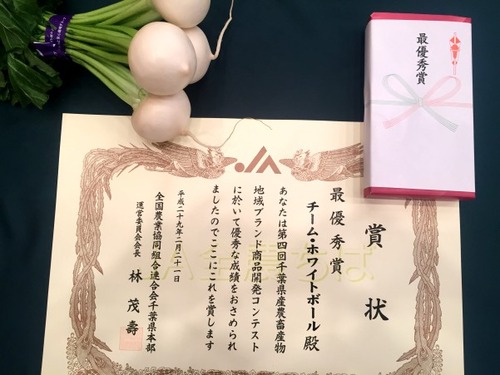 最優秀賞
賞状
最優秀賞
チーム・ホワイトボール殿
あなたは第四回千葉県産農畜産物
地域ブランド商品開発コンテスト
に於いて優秀な成績をおさめられ
ましたのでここにこれを賞します
平成二十九年二月二十一日
全国農業協同組合連合会千葉県本部
運営委員会会長 林茂壽
JA
JA全農ちば